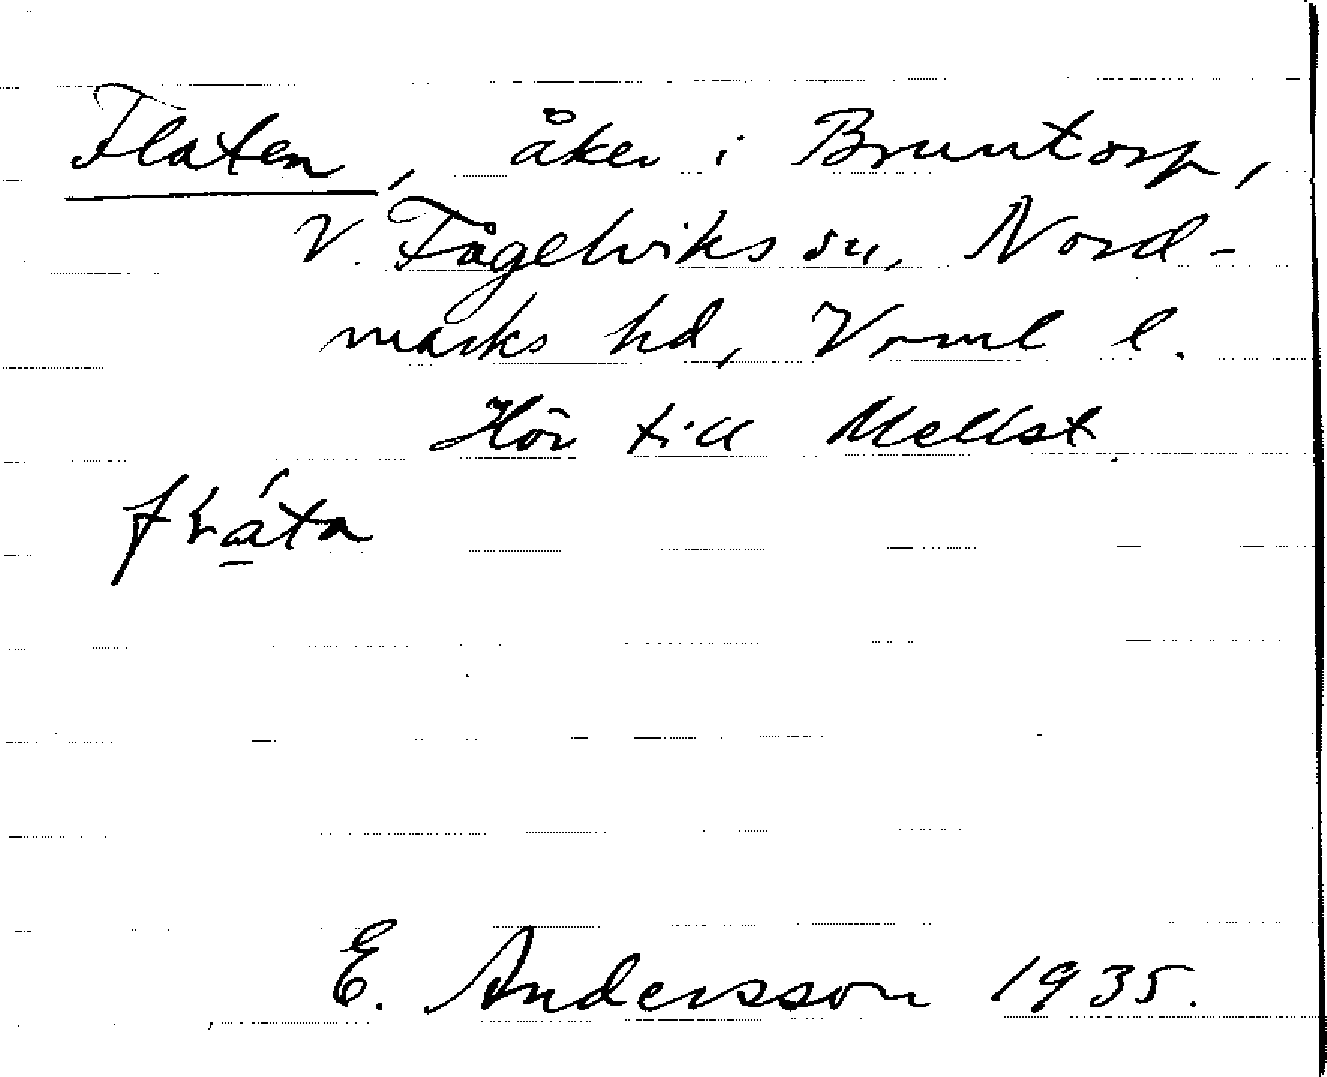 Flaten, åker i Bruntorp,
V. Fågelviks sn, Nord-
marks hd, Värml l.
Hör till Mellst.
fɽáta
E. Andersson 1935.